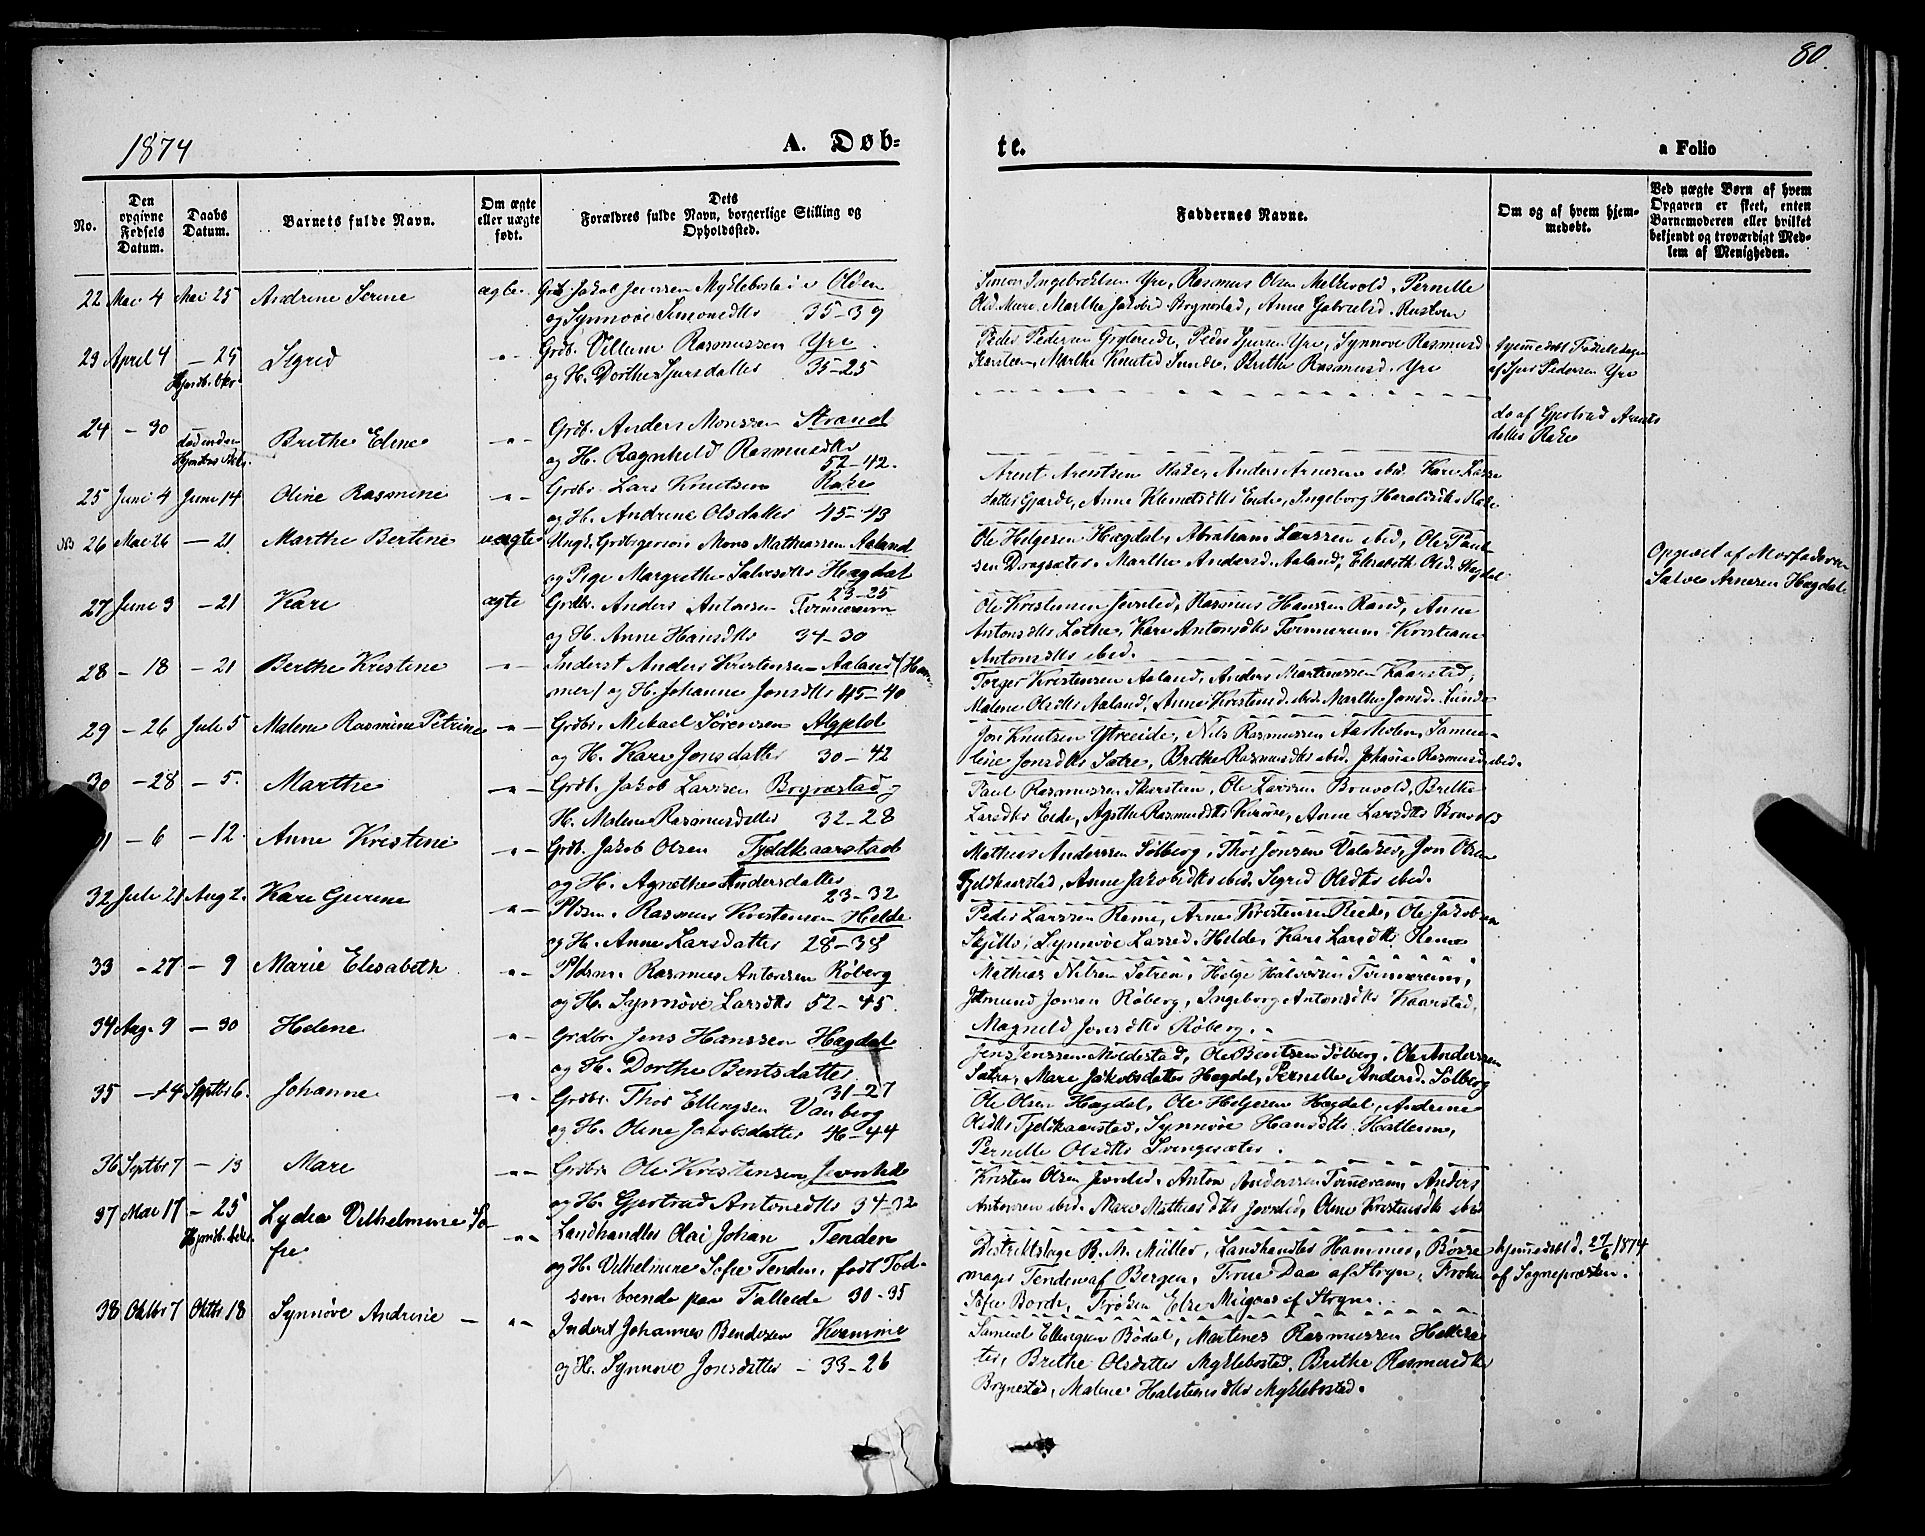 80.
1874
A. Døb-
te.
a Folio
No.
Den opgivne Fødsels Datum.
Daabs Datum.
Barnets fulde Navn.
Om ægte eller uægte født.
Dets Forældres fulde Navn, borgerlige Stilling og Opholdssted.
Faddernes Navne.
Om og af hvem hjemmedøbt.
Ved uægte Børn af hvem Opgaven er skeet, enten Barnemoderen eller hvilket bekjendt og troværdigt Medlem af Menigheden.
22 Mai 4 Mai 25 Andrine Serine ægte Grdb. Jakob Jenssen Myklebostad i Olden
og Synnøve Simonsdtr 35-39
Simon Ingebrektsen Yre, Rasmus Olsen Melkevold, Pernille
Olsd. Mure, Marthe Jakobsd. Brynestad, Anne Gabrielsd. Rustøen
23 April 4 - 25 Sigrid -"- Grdb. Villum Rasmussen Yre
og H. Dorthe Sjursdatter 35-25
Peder Pedersen Grytereide, Peder Sjursen Yre, Synnøve Rasmusd.
Skarsteen, Marthe Knutsd. Sunde, Brithe Rasmusd. Yre
hjemmedøbt Fødselsdagen
af Sjur Pedersen Yre
24 - 30 død inden Brithe Eline -"- Grdb. Anders Monssen Strand
og H. Ragnhild Rasmusdtr
52-42.
do af Gjertrud Arents
datter Rake
25 Juni 4 Juni 14 Oline Rasmine -"- Grdbr. Lars Knutsen Rake
og H. Andrine Olsdatter 45-43
Arent Arentsen Rake, Anders Arnesen ibid. Kari Lars
datter Gjærde, Anne Klemetsdtr Eide, Ingeborg Haraldsdtr Rake
NB 26 Mai 26 - 21 Marthe Bertine uægte Ungk. Grdbrgersøn Mons Mathiassen Aaland
og Pige Margrethe Salvesdtr Hægdal
23-25
Ole Helgesen Hægdal, Abraham Larssen ibid, Ole Paul-
sen Dragsæter, Marthe Andersd. Aaland, Elisabeth Olsd. Hægdal
Opgivet af Morfaderen
Salve Arnesen Hægdal.
27 Juni 3 - 21 Kari ægte Grdbr. Anders Antonsen Tvinnerum
og H. Anne Hansdtr 34-30
Ole Kristensen Jevnlid, Rasmus Hansen Rand, Anne
Antonsdtr Lothe, Kari Antonsdtr Tvinnerum Kristiane
Antonsdtr ibid.
28 - 18 - 21 Berthe Kristine -"- Inderst Anders Kristensen Aaland (Ham-
mer) og H. Johanne Jonsdtr 45-40
Torger Kristensen Aaland, Anders Martinussen Kaarstad,
Malene Olsdtr Aaland, Anne Kristensd. ibid. Marthe Jonsd. Sunde
29 - 26 Juli 5 Malene Rasmine Petrine -"- Grdbr. Mikael Sørensen Algjeld
og H. Kari Jonsdatter 30-42
Jon Knutsen Ytreeide, Nils Rasmussen Aarholen, Samue-
line Jonsdtr Sætre, Brithe Rasmusdtr ibid. Johanne Rasmusd ibid.
30 - 28 - 5. Marthe -"- Grdb. Jakob Larssen Brynestad og
H. Malene Rasmusdatter 32-28
Paul Rasmussen Skarsteen, Ole Larssen Bruvold, Brithe
Larsdtr Eide, Agathe Rasmusdtr, Anne Larsdtr Bruvold
31 - 6 - 12. Anne Kristine -"- Grdb. Jakob Olsen Fjeldkaarstad
og H. Agnethe Andersdatter
23-32
Mathias Andersen Solberg, Thor Jonsen Valaker, Jon Olsen
Fjeldkaarstad, Anne Jakobsdtr ibid. Sigrid Olsdtr ibid.
32 Juli 21 Aug 2. Kari Gurine -"- Pldsm. Rasmus Kristensen Helde
og H. Anne Larsdatter 28-38
Peder Larssen Reme, Arne Kristensen Reed, Ole Jakobsen
Synnøve Larsd. Helde, Kari Larsdtr
33 - 27 - 9 Marie Elisabeth -"- Pldsm. Rasmus Antonsen Røberg
og H. Synnøve Larsdtr 52-45.
Mathias Nilsen Sætren, Helge Halvorsen Tvinnerum,
Jetmund Jonsen Røberg, Ingeborg Antonsdtr Kaarstad,
Magnild Jonsdtr Røberg.
34 Aug. 9 - 30 Helene -"- Grdbr. Jens Hanssen Hægdal
og H. Dorthe Bentsdatter
31-27
Jens Jenssen Moldestad, Ole Bentsen Solberg, Ole Anderssen
Sætre, Mari Jakobsdatter Hægdal, Pernille Andersd. Solberg
35 - 14 Septbr 6. Johanne -"- Grdbr. Thor Ellingsen Vanberg
og H. Oline Jakobsdatter 46-44
Ole Olsen Hægdal, Ole Helgesen Hægdal, Andrine
Olsdtr Fjeldkaarstad, Synnøve Hansdtr Hatlerim,
Pernille Olsdtr Svingesæter.
36 Septbr 7 - 13 Mari -"- Grdbr. Ole Kristensen Jevnlid
og H. Gjertrud Antonsdtr 34-32
Kristen Olsen Jevnlid, Anton Anderssen Tvinnerum, Anders
Antonsen ibid. Mari Mathiasdtr Jevnlid, Oline Kristensdtr ibid
37 Mai 17 - 25 Lydia Vilhelmine So-
fie -"- Landhandler Olai Johan Tenden
og H. Vilhelmine Sofie Tenden, født Tod-
sem boende paa Falleide 30-35
Distriktslæge B. M. Müller, Landhandler Hammer, Børse
mager Tenden af Bergen, Frue Daa af Stryn, Frøken
Sofie Borch, Frøken Else af Stryn.
hjemmedøbt d. 27/6 1874
af Sognepresten.
38 Oktbr 7 Oktbr 18 Synnøve Andrine -"- Inderst Johannes Bendixen Kvamme
og H. Synnøve Jonsdatter - 33-26
Samuel Ellingsen Bødal, Martines Rasmussen Hellesæ-
ter, Brithe Olsdatter Myklebostad, Brithe Rasmusdtr
Brynestad, Malene Halstensdtr Myklebostad.